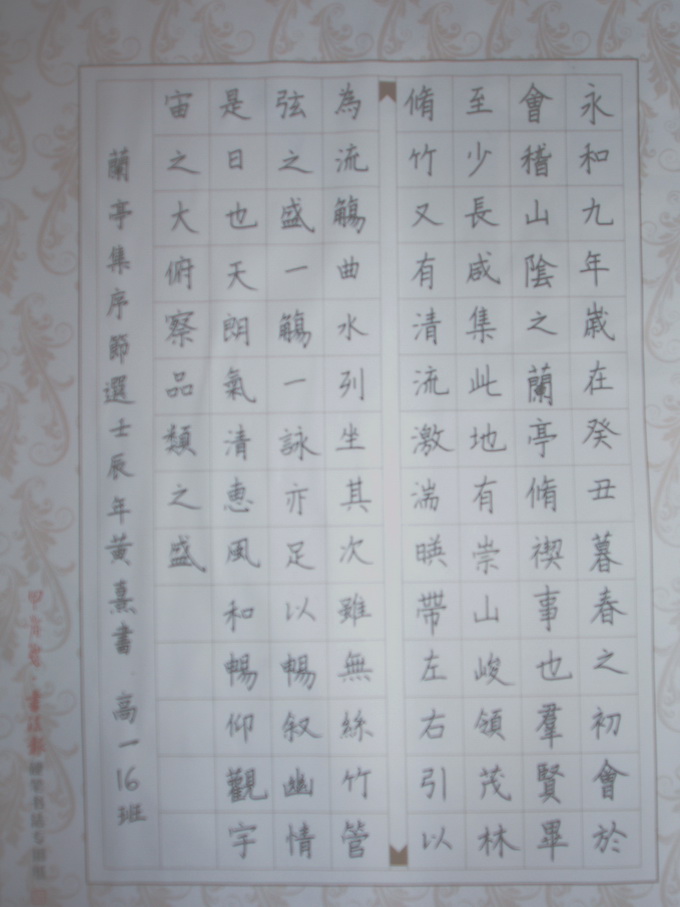 永和九年歲在癸丑暮春之初會於
會稽山陰之蘭亭脩禊事也羣賢畢
至少長咸集此地有崇山峻領茂林
脩竹又有清流激湍暎帶左右引以
為流觴曲水列坐其次雖無絲竹管
弦之盛一觴一詠亦足以暢叙幽情
是日也天朗氣清惠風和暢仰觀宇
宙之大俯察品類之盛
蘭亭集序節選壬辰年黄熹書 高一16班